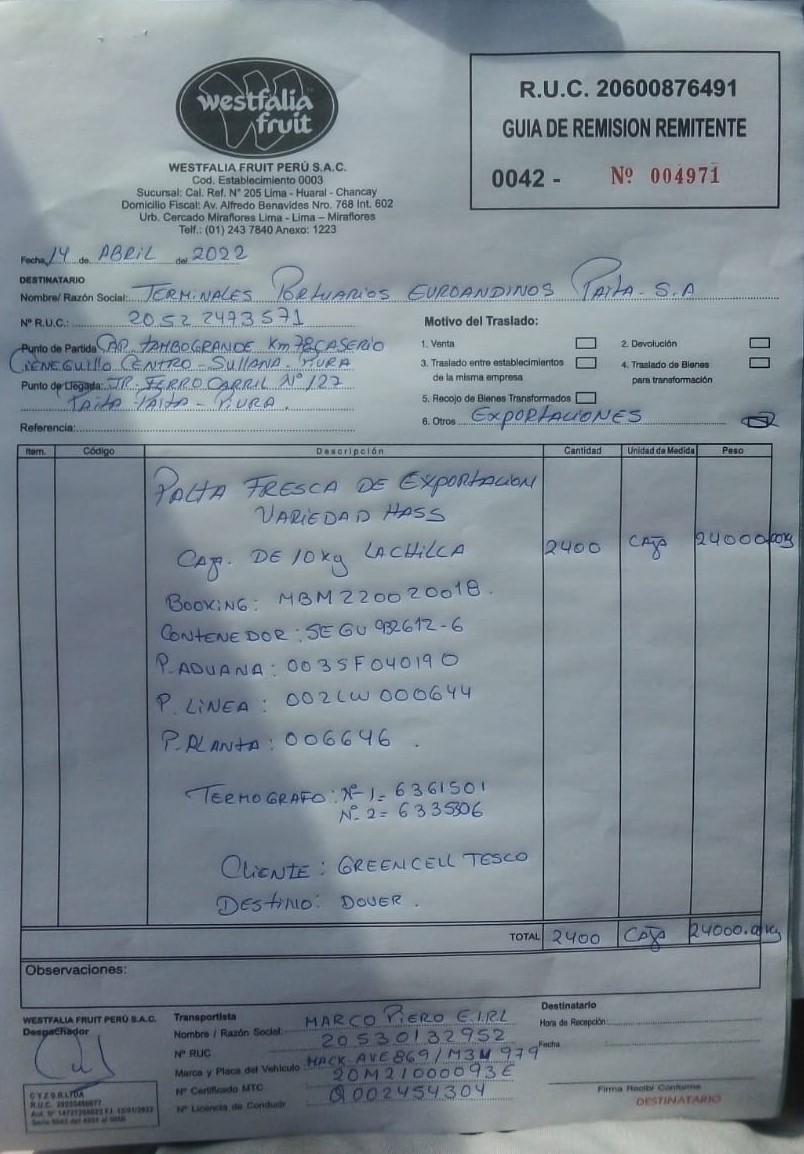 westfalia
fruit
WESTFALIA FRUIT PERÚ S.A.C.
Cod. Establecimiento 0003
Sucursal: Cal. Ref. N° 205 Lima - Huaral - Chancay
Domicilio Fiscal: Av. Alfredo Benavides Nro. 768 Int. 602
Urb. Cercado Miraflores Lima - Lima – Miraflores
Telf.: (01) 243 7840 Anexo: 1223
R.U.C. 20600876491
GUIA DE REMISION REMITENTE
0042 - Nº 004971
Fecha, 14 de ABRIL del 2022
DESTINATARIO
Nombre/ Razón Social: TERMINALES PORTUARIOS EUROANDINOS PAITA - S.A
Nº R.U.C.: 20522473571
Punto de Partida: CAR. TAMBOGRANDE Km 78 CASERIO
CIENEGUILLO CENTRO - SULLANA - PIURA
Punto de Llegada: JR. FERROCARRIL Nº 127
PAITA PAITA - PIURA.
Referencia:
Motivo del Traslado:
1. Venta
2. Devolución
3. Traslado entre establecimientos
de la misma empresa
4. Traslado de Bienes
para transformación
5. Recojo de Bienes Transformados
6. Otros EXPORTACIONES
Item. Código Descripción Cantidad Unidad de Medida Peso
PALTA FRESCA DE EXPORTACION
VARIEDAD HASS
CAJ. DE 10 Kg LA CHILCA 2400 CAJA 24000.00Kg
BOOKING: MBM220020018.
CONTENEDOR: SEGU 932612-6
P. ADUANA: 0035F040190
P. LINEA: 002LW000644
P. PLANTA: 006646.
TERMOGRAFO: Nº 1= 6361501
Nº 2= 6335306
CLIENTE: GREENCELL TESCO
DESTINO: DOVER.
TOTAL 2400 CAJA 24000.00Kg
Observaciones:
WESTFALIA FRUIT PERÚ S.A.C.
Despachador
Transportista
Nombre / Razón Social: MARCO PIERO E.I.R.L
Nº RUC 20530132952
Marca y Placa del Vehículo: MACK AVE869/M3U 979
Nº Certificado MTC 20M21000093E
Nº Licencia de Conducir Q002454304
Destinatario
Hora de Recepción:
Fecha
Firma Recibí Conforme
DESTINATARIO